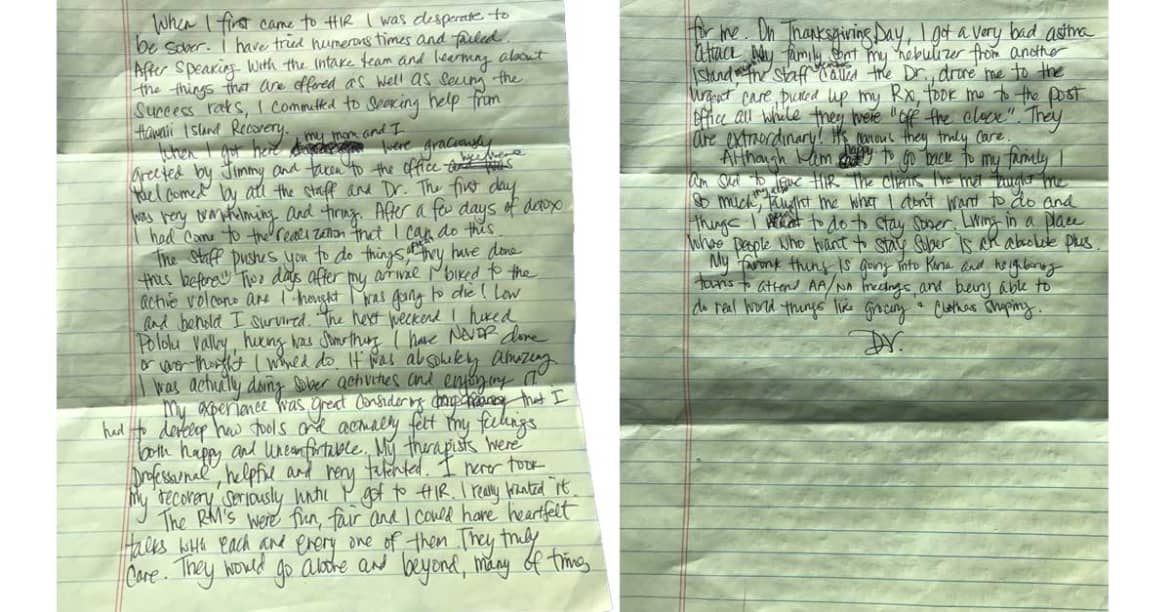 When I first came to HIR I was desperate to
be sober. I have tried numerous times and failed.
After speaking with the intake team and learning about
the things that are offered as well as seeing the
success rates, I committed to seeking help from
Hawaii Island Recovery.
When I got here my mom and I were graciously
greeted by Jimmy and taken to the office
welcomed by all the staff and Dr. The first day
was very overwhelming and tiring. After a few days of detox
I had come to the realization that I can do this.
The staff pushes you to do things they have done
this before" Two days after my arrival I biked to the
active volcano and I thought I was going to die! Low
and behold I survived. The next weekend I hiked
Pololu Valley, hiking was something I have NEVER done
or ever thought I would do. It was absolutely amazing
I was actually doing sober activities and enjoying it
My experience was great considering that I
had to develop new tools and actually felt my feelings
both happy and uncomfortable. My therapists were
professional, helpful and very talented. I never took
my recovery seriously until I got to HIR. I really wanted it.
The RM's were fun, fair and I could have heartfelt
talks with each and every one of them They truly
care. They would go above and beyond, many of times
for me. On Thanksgiving Day, I got a very bad astma
attack. My family sent my nebulizer from another
island, the staff called the Dr, drove me to the
urgent care, picked up my Rx, took me to the post
office all while they were "off the clock". They
are extraordinary! It's obvious they truly care.
Although I am happy to go back to my family I
am sad to leave HIR The clients I've met taught me
so much, taught me what I don't want to do and
things I to do to stay sober. Living in a place
where people who want to stay sober is an absolute plus.
My favorite thing is going into Kona and neighboring
towns to attend AA/NA meetings and being able to
do real world things like grocery + clothes shopping.
DV.